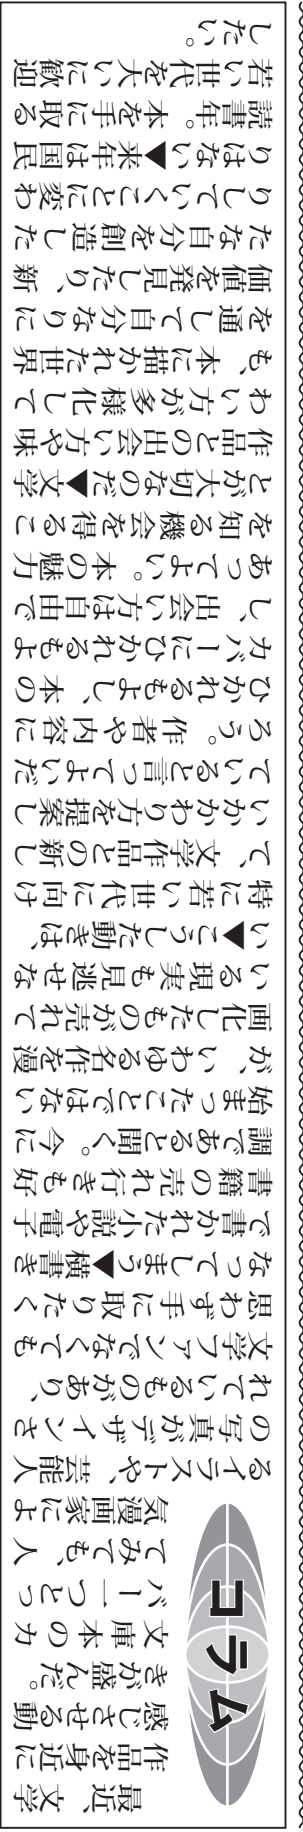 コラム
最近、文学
作品を身近に
感じさせる動
きが盛んだ。
文庫本のカ
バー一つとっ
てみても、人
気漫画家によ
るイラストや、芸能人
の写真がデザインさ
れているものがあり、
文学ファンでなくても
思わず手に取りたく
なってしまう▼横書き
で書かれた小説や電子
書籍の売れ行きも好
調であると聞く。今に
始まったことではない
が、いわゆる名作を漫
画化したものが売れて
いる現実も見逃せな
い▼こうした動きは、
特に若い世代に向け
て、文学作品との新し
いかかわり方を提案し
ていると言ってよいだ
ろう。作者や内容に
ひかれるもよし、本の
カバーにひかれるもよ
し、出会い方は自由で
あってよい。本の魅力
を知る機会を得るこ
とが大切なのだ▼文学
作品との出会い方や味
わい方が多様化して
も、本に描かれた世界
を通して自分なりに
価値を発見したり、新
たな自分を創造した
りしていくことに変わ
りはない▼来年は国民
読書年。本を手に取る
若い世代を大いに歓迎
したい。